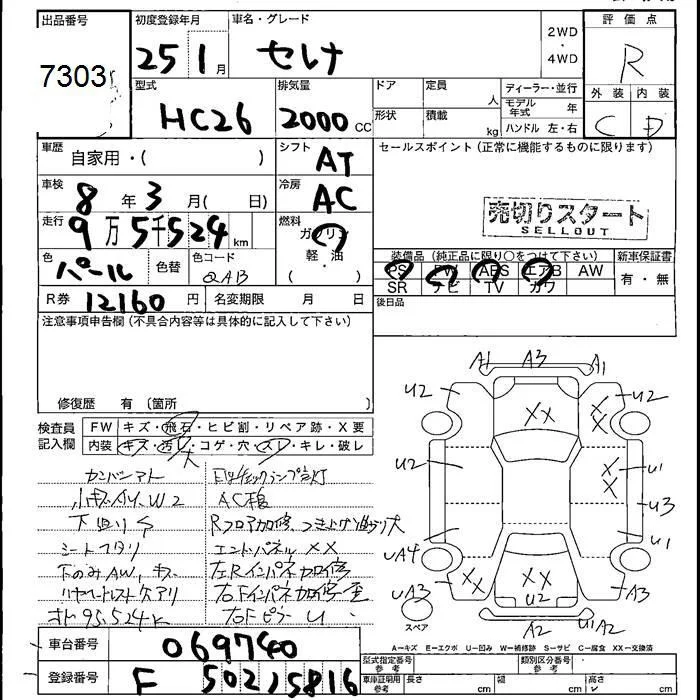 出品番号
7303
初度登録年月
25 1月
車名・グレード
セレナ
2WD
・
4WD
評価点
R
外装 内装
C D
型式
HC26
排気量
2000cc
ドア
形状
定員 人
積載 kg
ディーラー・並行
モデル年式 年
ハンドル 左・右
車歴
自家用・( )
シフト
AT
車検
8年3月( 日)
冷房
AC
走行
9万5千524km
燃料
ガソリン
軽・油
( )
色
パール
色替
色コード
QAB
R券 12160円
名変期限 月 日
セールスポイント(正常に機能するものに限ります)
売切りスタート
SELLOUT
装備品(純正品に限り○をつけて下さい)
PS PW ABS エアB AW
SR ナビ TV カワ
新車保証書
有・無
後日品
注意事項申告欄(不具合内容等は具体的に記入して下さい)
修復歴 有 〔箇所
検査員記入欄
FW キズ・飛石・ヒビ割・リペア跡・X要
内装 キズ・汚レ・コゲ・穴・スレ・キレ・破レ
大
カンバンアト
小キズ、凹、W2
下回りS
シートヘタリ
下のみAW、キズ
リヤヘッドレスト欠アリ
メーター95,524K
EGチェックランプ点灯
AC
Rフロア加修 つき上げ 曲り大
エンドパネルXX
左Rインパネ加修
右Fインパネ加修 歪
右Fピラー U
A1 A3 A1
U2 XX X X U2
U2 X X U1
U3
UA4 U1
UA3 XX XX A3
U2
A2 A2 U1
スペア
A－キズ E－エクボ U－凹み W－補修跡 S－サビ C－腐食 XX－交換済
車台番号
069740
登録番号
F 50215816
型式指定番号
参考
類別区分番号
参考
車庫証明用
参考
長さ cm
幅 cm
高さ cm